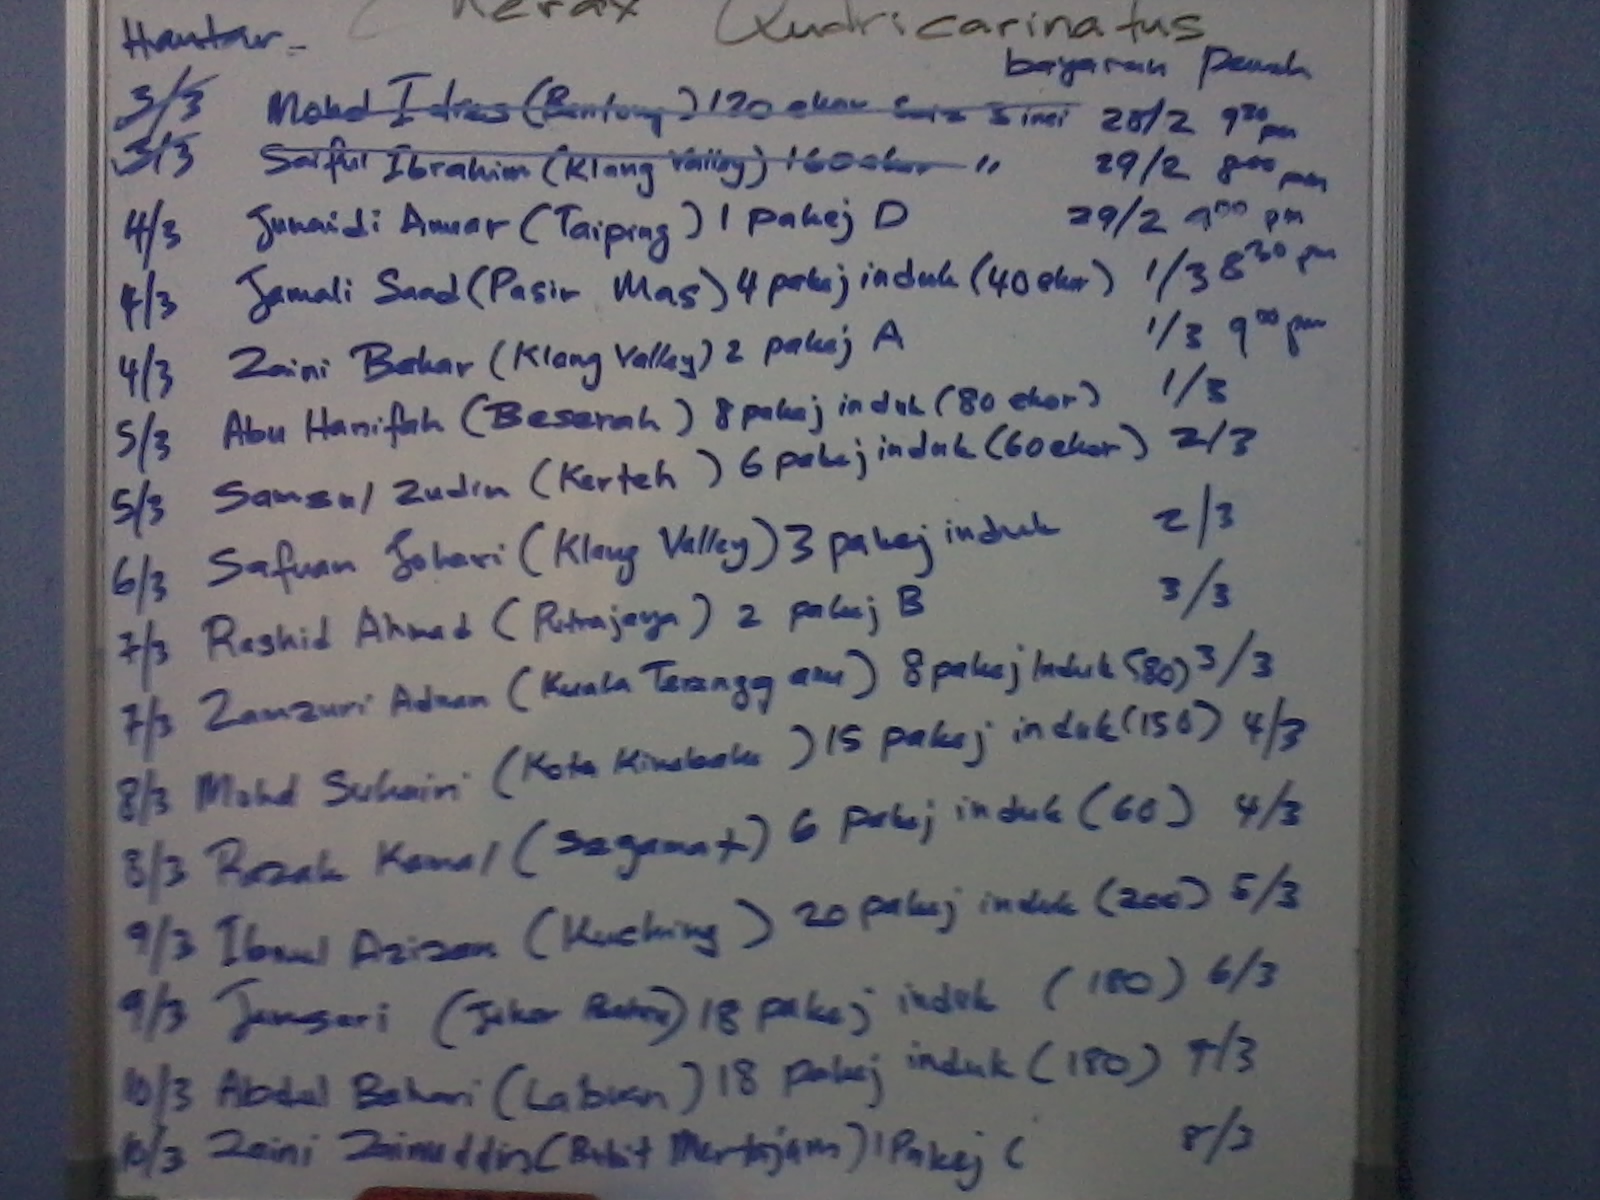 Cherax Qudricarinatus
Hantar - bayaran penuh
3/3 Mohd Idres (Bentong) 120 ekor Saiz 3 inci 28/2 9 30 pm
3/3 Saiful Ibrahim (Klang Valley) 160 ekor " 29/2 8 00 pm
4/3 Junaidi Anuar (Taiping) 1 pakej D 29/2 9 00 pm
4/3 Jamali Saad (Pasir Mas) 4 pakej induk (40 ekor) 1/3 8 30 pm
4/3 Zaini Bakar (Klang Valley) 2 pakej A 1/3 9 00 pm
5/3 Abu Hanifah (Beserah) 8 pakej induk (80 ekor) 1/3
5/3 Samsul Zudin (Kerteh) 6 pakej induk (60 ekor) 2/3
6/3 Safuan Johari (Klang Valley) 3 pakej induk 2/3
7/3 Rashid Ahmad (Putrajaya) 2 pakej B 3/3
7/3 Zamzuri Adnan (Kuala Terengganu) 8 pakej Induk (80) 3/3
8/3 Mohd Suhairi (Kota Kinabalu) 15 pakej induk (150) 4/3
8/3 Razak Kamal (Segamat) 6 pakej induk (60) 4/3
9/3 Azizan (Kuching) 20 pakej induk (200) 5/3
9/3 Jumsari (Johor Bahru) 18 pakej induk (180) 6/3
10/3 Abdul Bahari (Labuan) 18 pakej induk (180) /3
10/3 Zaini Zainuddin (Bukit Mertajam) 1 Pakej C 8/3